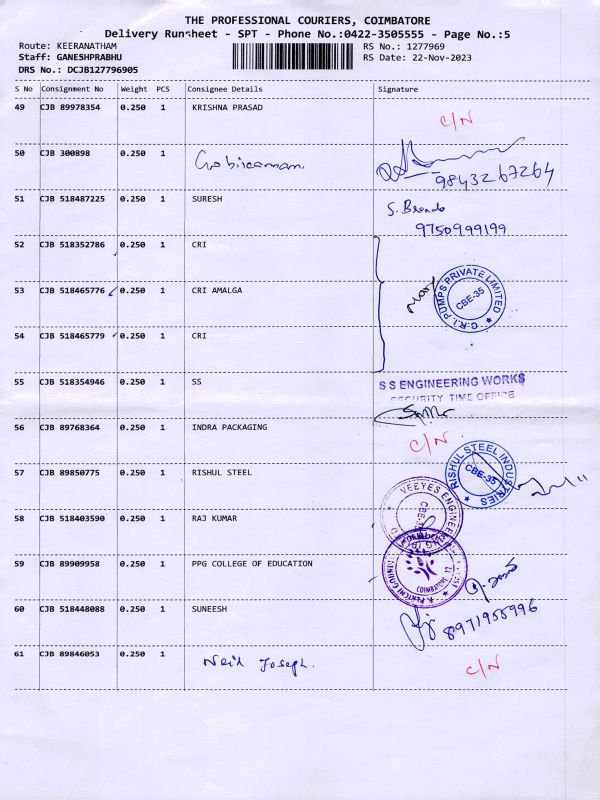 THE PROFESSIONAL COURIERS, COIMBATORE
Delivery Runsheet - SPT - Phone No.:0422-3505555 - Page No.:5
Route: KEERANATHAM
RS No.: 1277969
Staff: GANESHPRABHU
RS Date: 22-Nov-2023
DRS No.: DCJB127796905
S No Consignment No Weight PCS Consignee Details Signature
49 CJB 89978354 0.250 1 KRISHNA PRASAD
C/N
50 CJB 300898 0.250 1
9843267264
51 CJB 518487225 0.250 1 SURESH
S. Brenda
9750999199
52 CJB 518352786 0.250 1 CRI
53 CJB 518465776 0.250 1 CRI AMALGA
Mary
C.R.I. PUMPS PRIVATE LIMITED
CBE-35
54 CJB 518465779 0.250 1 CRI
55 CJB 518354946 0.250 1 SS
S S ENGINEERING WORKS
SECURITY TIME OFFICE
56 CJB 89768364 0.250 1 INDRA PACKAGING
C/N
57 CJB 89850775 0.250 1 RISHUL STEEL
RISHUL STEEL INDUSTRIES
CBE-35
58 CJB 518403590 0.250 1 RAJ KUMAR
VEEYES ENGINEE
59 CJB 89909958 0.250 1 PPG COLLEGE OF EDUCATION
COIMBATORE
60 CJB 518448088 0.250 1 SUNEESH
8971955996
61 CJB 89846053 0.250 1 Neil Joseph.
C/N